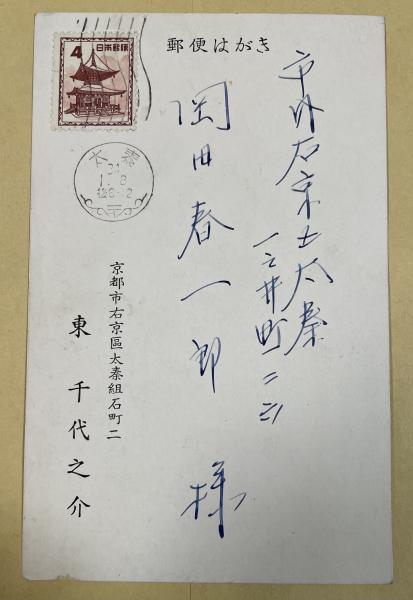 郵便はがき
4
日本郵便
太秦
31
1.8
後6-12
市内右京区太秦
一之井町二ニ
岡田春一郎 様
京都市右京區太秦組石町二
東 千代之介